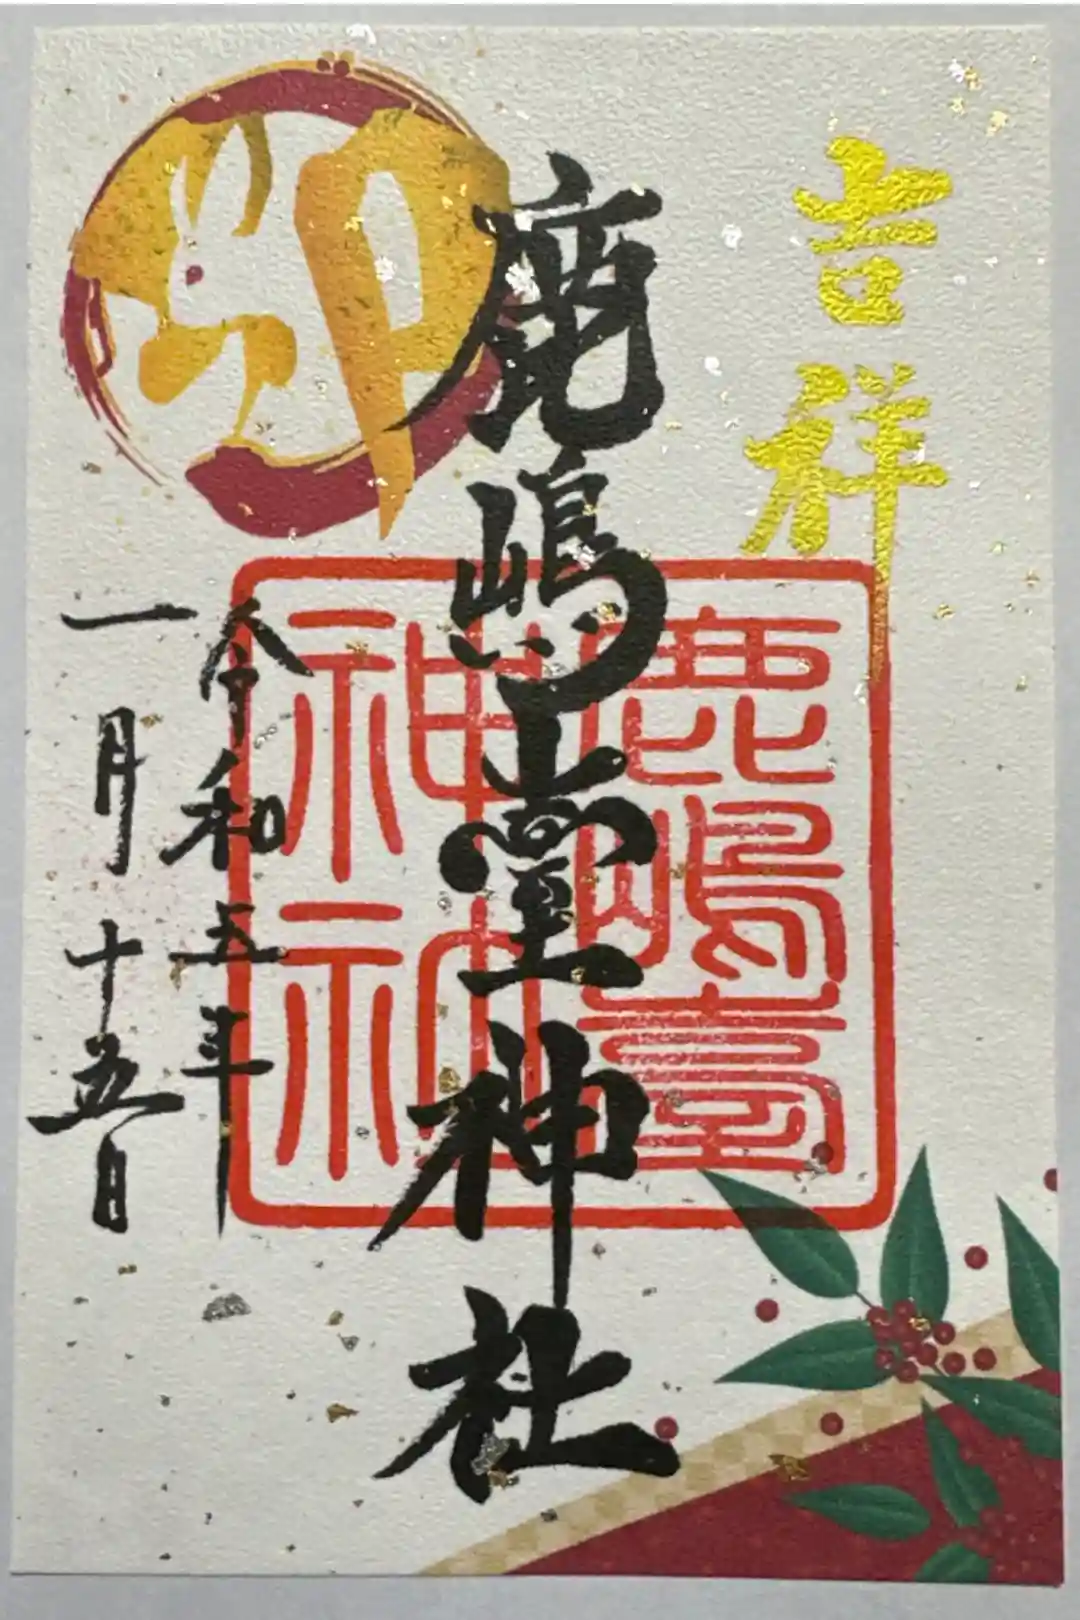 吉祥
鹿嶋臺神社
鹿嶋臺
神社
卯
令和五年
一月十五日